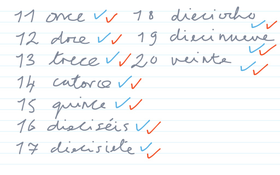 11 once 18 dieciocho
12 doce 19 diecinueve
13 trece 20 veinte
14 catorce
15 quince
16 dieciséis
17 diecisiete